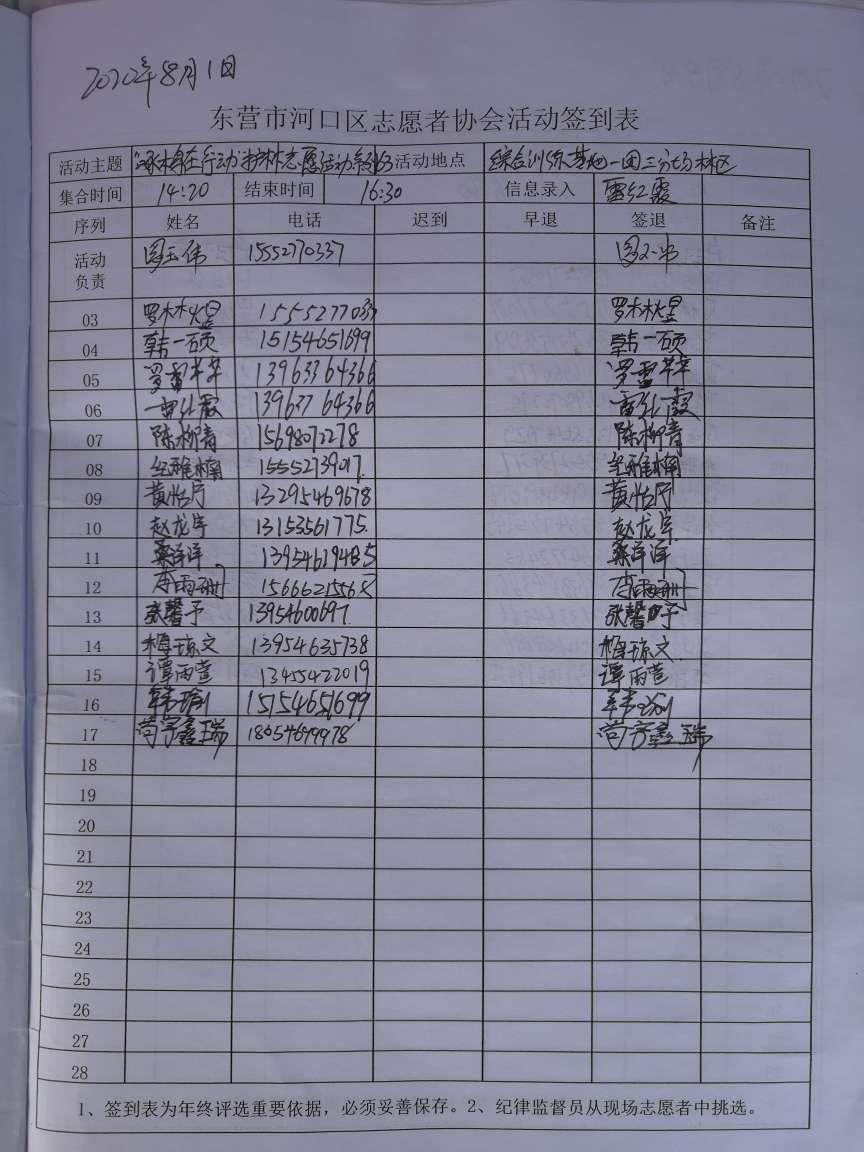 2020年8月1日
东营市河口区志愿者协会活动签到表
活动主题 "啄木鸟在行动"护林志愿活动 活动地点 综合训练基地一团三分场林区
集合时间 14:20 结束时间 16:30 信息录入 雷红霞
序列 姓名 电话 迟到 早退 签退 备注
活动负责 15552770337
03 罗木木煜 1555277033 罗木木煜
04 韩一硕 15154651699 韩一硕
05 13963364366
06 雷红霞 13963764366 雷红霞
07 陈柳青 15698072278 陈柳青
08 纪雅楠 15552739017 纪雅楠
09 黄怡宁 13295469678 黄怡宁
10 赵龙宇 13153561775 赵龙宇
11 桑洋洋 13954619485 桑洋洋
12 李雨珊 李雨珊
13 张馨予 13954600697 张馨予
14 梅琼文 13954635738 梅琼文
15 谭雨萱 13455422019 谭雨萱
16 韩瑜 15154651699 韩瑜
17 18654699978
18
19
20
21
22
23
24
25
26
27
28
1、签到表为年终评选重要依据，必须妥善保存。2、纪律监督员从现场志愿者中挑选。